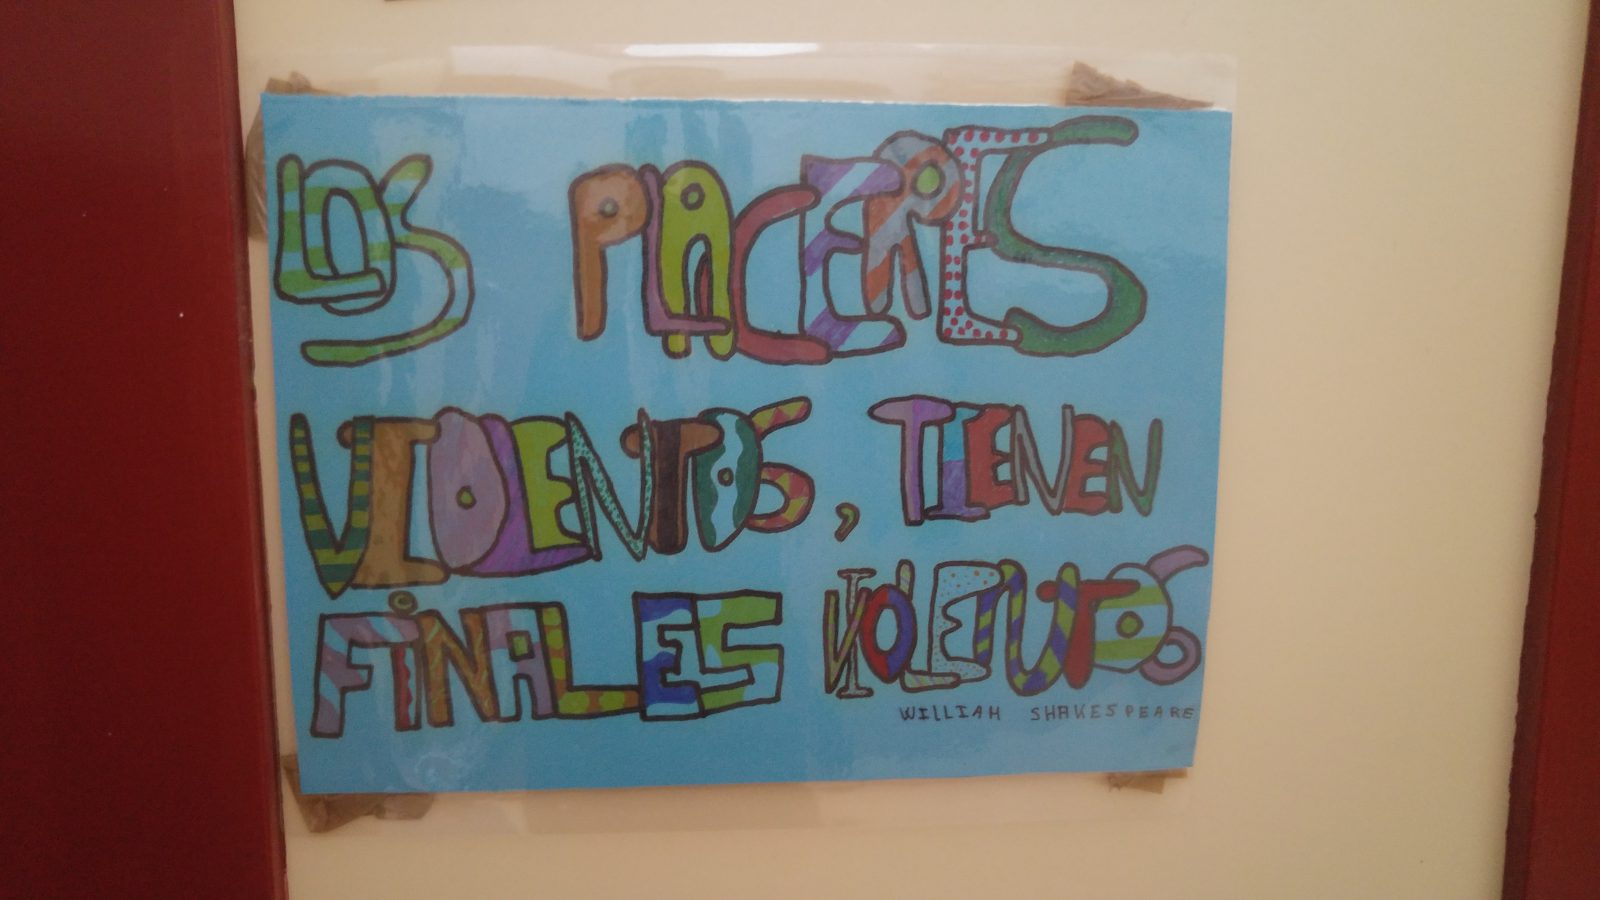 LOS PLACERES
VIOLENTOS, TIENEN
FINALES VIOLENTOS
WILLIAM SHAKESPEARE